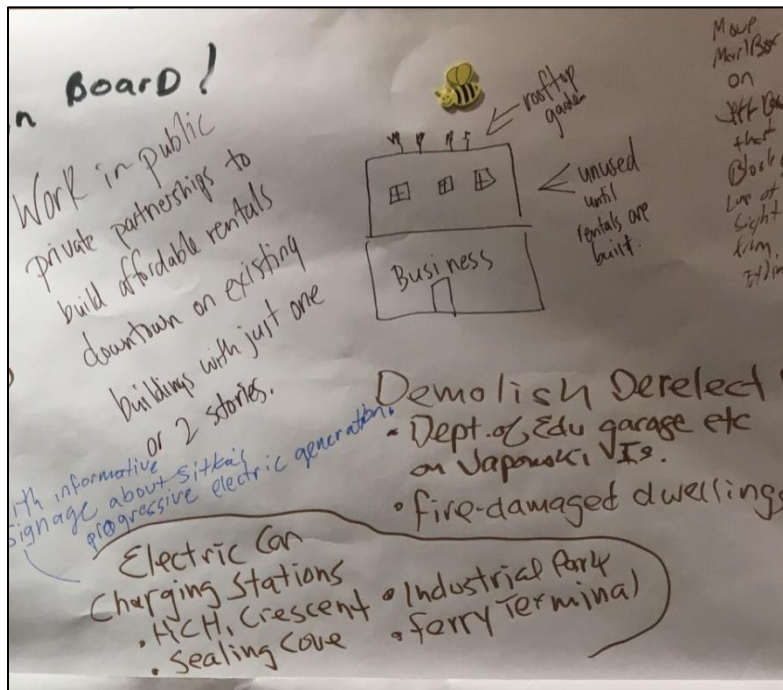 n BOARD!
Work in public
private partnerships to
build affordable rentals
downtown on existing
buildings with just one
or 2 stories.
rooftop
garden
unused
until
rentals are
built.
Business
Move
MailBox
on
that
Block
Line of
Sight
Demolish Derelect
• Dept. of Edu garage etc
on Japonski Is.
• fire-damaged dwellings
ith informative
signage about Sitka's
progressive electric generation.
Electric Car
Charging Stations
• HCH, Crescent
• Sealing Cove
• Industrial Park
• Ferry Terminal